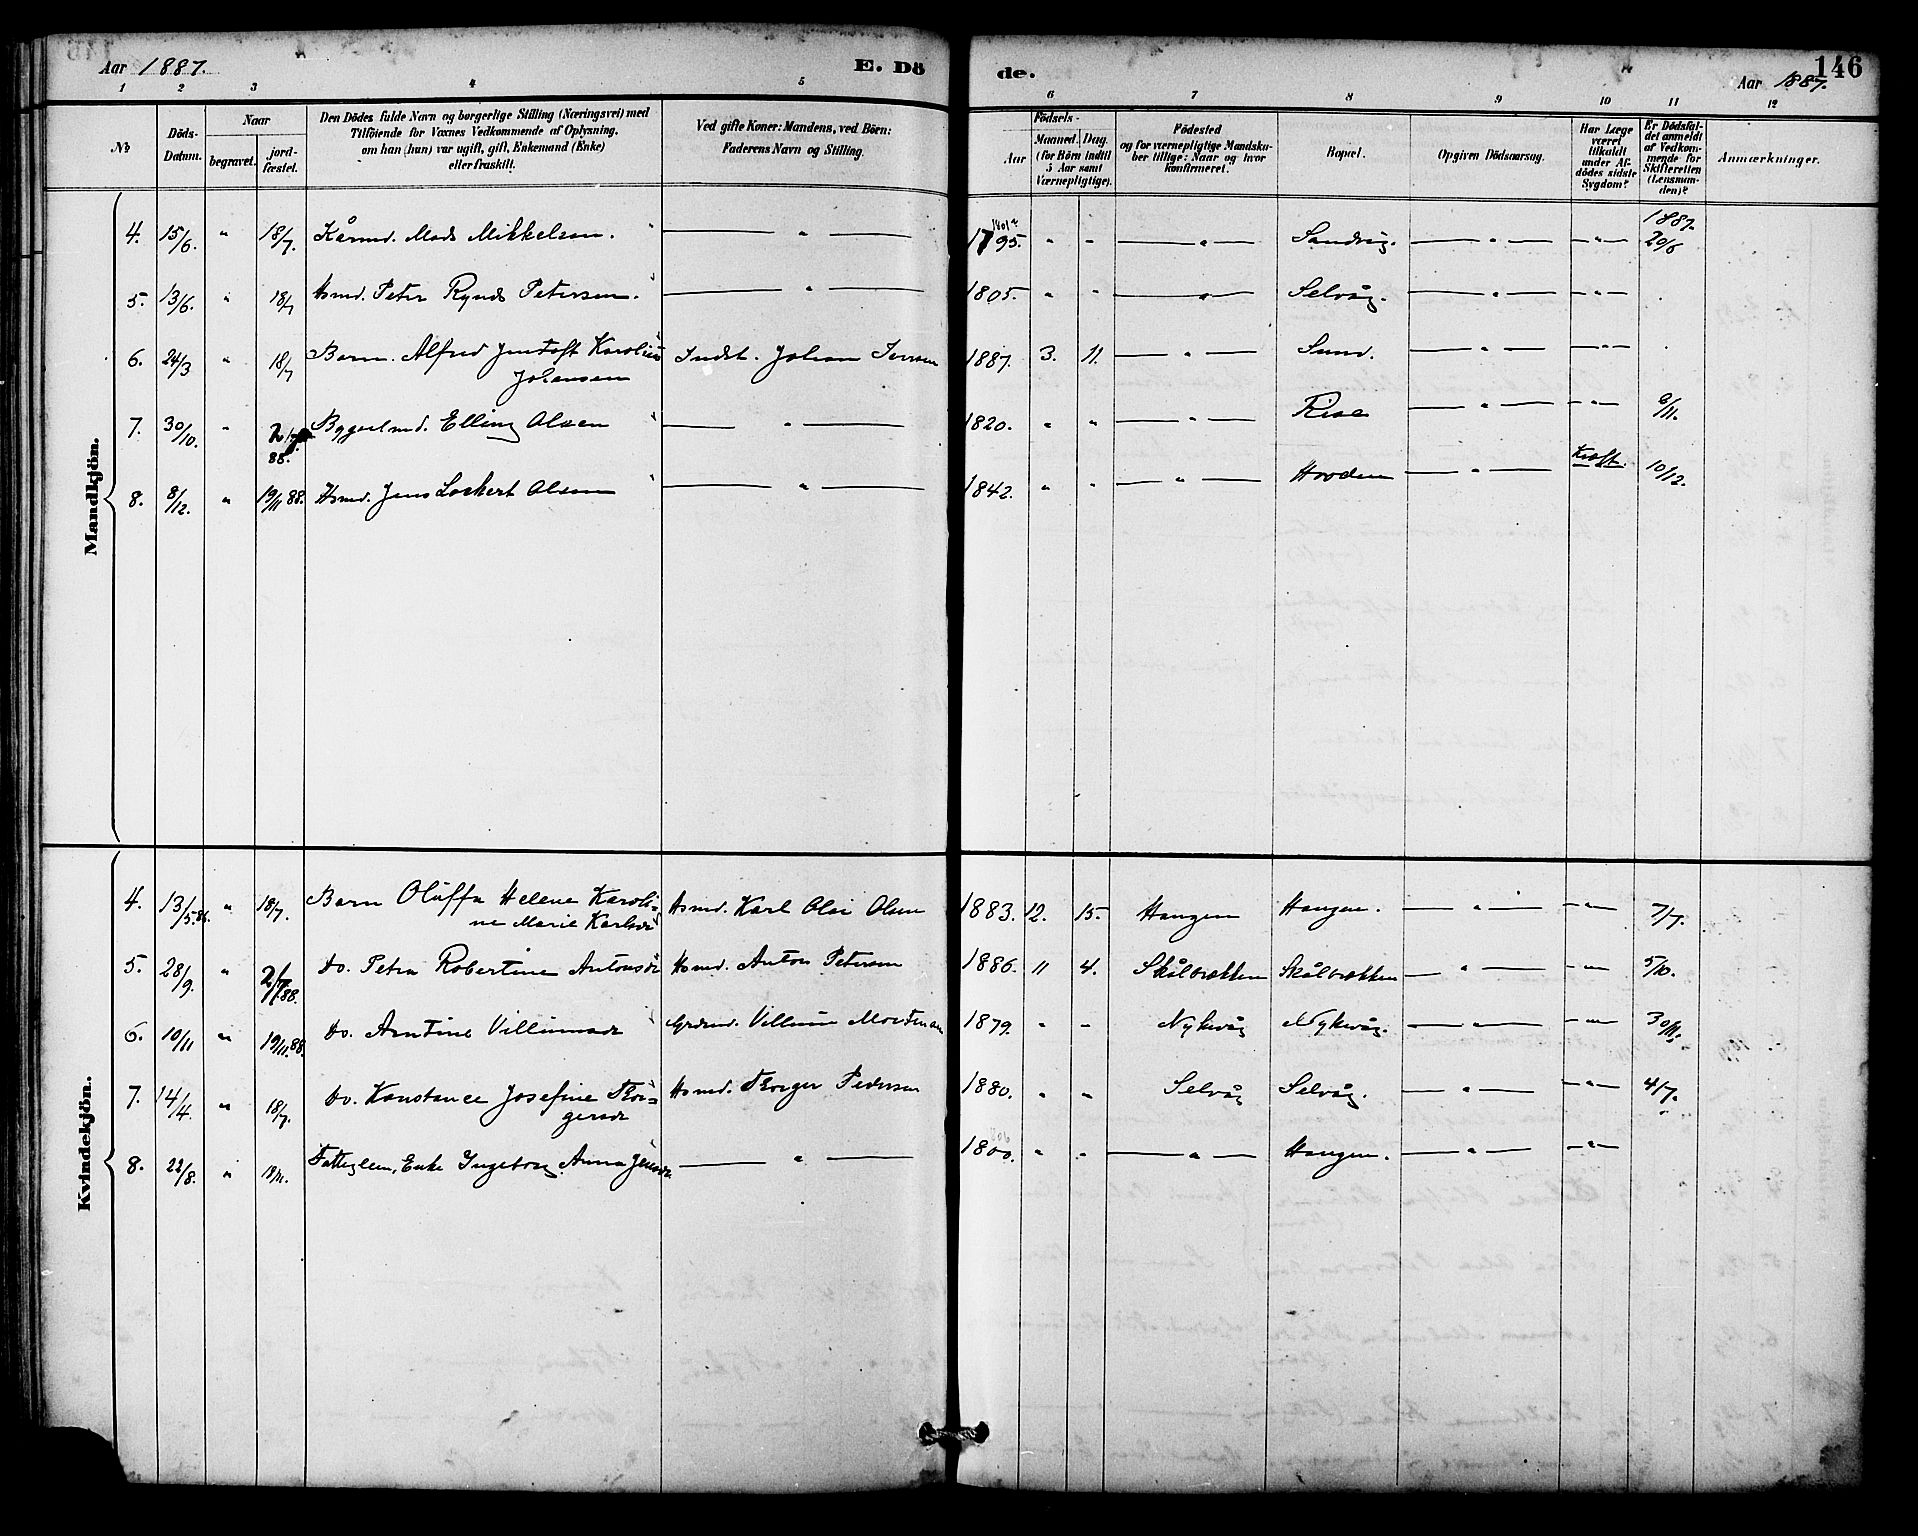 Aar 1887. E. Dö de. Aar 1887. 146
1 2 3 4 5 6 7 8 9 10 11 12
No
Döds-Datum.
Naar
begravet.
jord-fæstet.
Den Dödes fulde Navn og borgerlige Stilling (Næringsvei) med
Tilföiende for Voxnes Vedkommende af Oplysning,
om han (hun) var ugift, gift, Enkemand (Enke)
eller fraskilt.
Ved gifte Koner: Mandens, ved Börn:
Faderens Navn og Stilling.
Födsels-
Aar
Maaned. Dag.
(for Börn indtil
5 Aar samt
Værnepligtige).
Födested
og for værnepligtige Mandsku-
ber tillige: Naar og hvor
konfirmeret.
Bopæl.
Opgiven Dödsaarsag.
Har Læge
været
tilkaldt
under Af-
dödes sidste
Sygdom?
Er Dödsfal-
det anmeldt
af Vedkom-
mende for
Skifteretten
(Lensman-
den)?
Anmærkninger.
Mandkjön.
4. 15/6. " 18/7. Kårmd. Mads Mikkelsen. — " — 1795. " " — " — Sandvig. — " — — " — 1887. 20/6
5. 13/6. " 18/7 Hsmd. Peter Rynds Petersen. — " — 1805. " " — " — Selvåg. — " — — " —
6. 24/3 " 18/7 Barn. Alfred Jentoft Karolius Indst. Johan 1887. 3. 11. — " — Sund. — " — — " —
Johansen
7. 30/10. " Elling Olsen — " — 1820. " " — " — Risa — " — — " — 9/11.
88.
8. 8/12. " 19/11 88. Hsmd. Jens Lockert Olsen — " — 1842. " " — " — Hovden — " — Kraft. 10/12.
Kvindekjön.
4. 13/5.86. " 18/7. Barn Oluffa Helene Karoli- Hsmd. Karl Olai Olsen 1883. 12. 15. Haugen Haugen. — " — — " — 7/7.
ne Marie Karlsdr
5. 28/9. " 2/7.88. Do. Petra Robertine Antonsdr Hsmd. Anton Petersen 1886. 11 4. Skålbrækken Skålbrækken — " — — " — 5/10.
6. 10/11 " 19/11.88. Do. Arntine Villiumsdr Grdmd. Villium Mortensen 1879. " " Nykvåg Nykvåg. — " — — " — 30/11.
7. 14/4. " 18/7. Do. Konstance Josefine Thor- Hsmd. Thorger Pedersen 1880. " " Selvåg Selvåg. — " — — " — 4/7.
gersdr
8. 22/8. " Fattiglem, Enke Ingeborg Anna Jensdr — " — 1800. " " — " — Haugen. — " — — " —